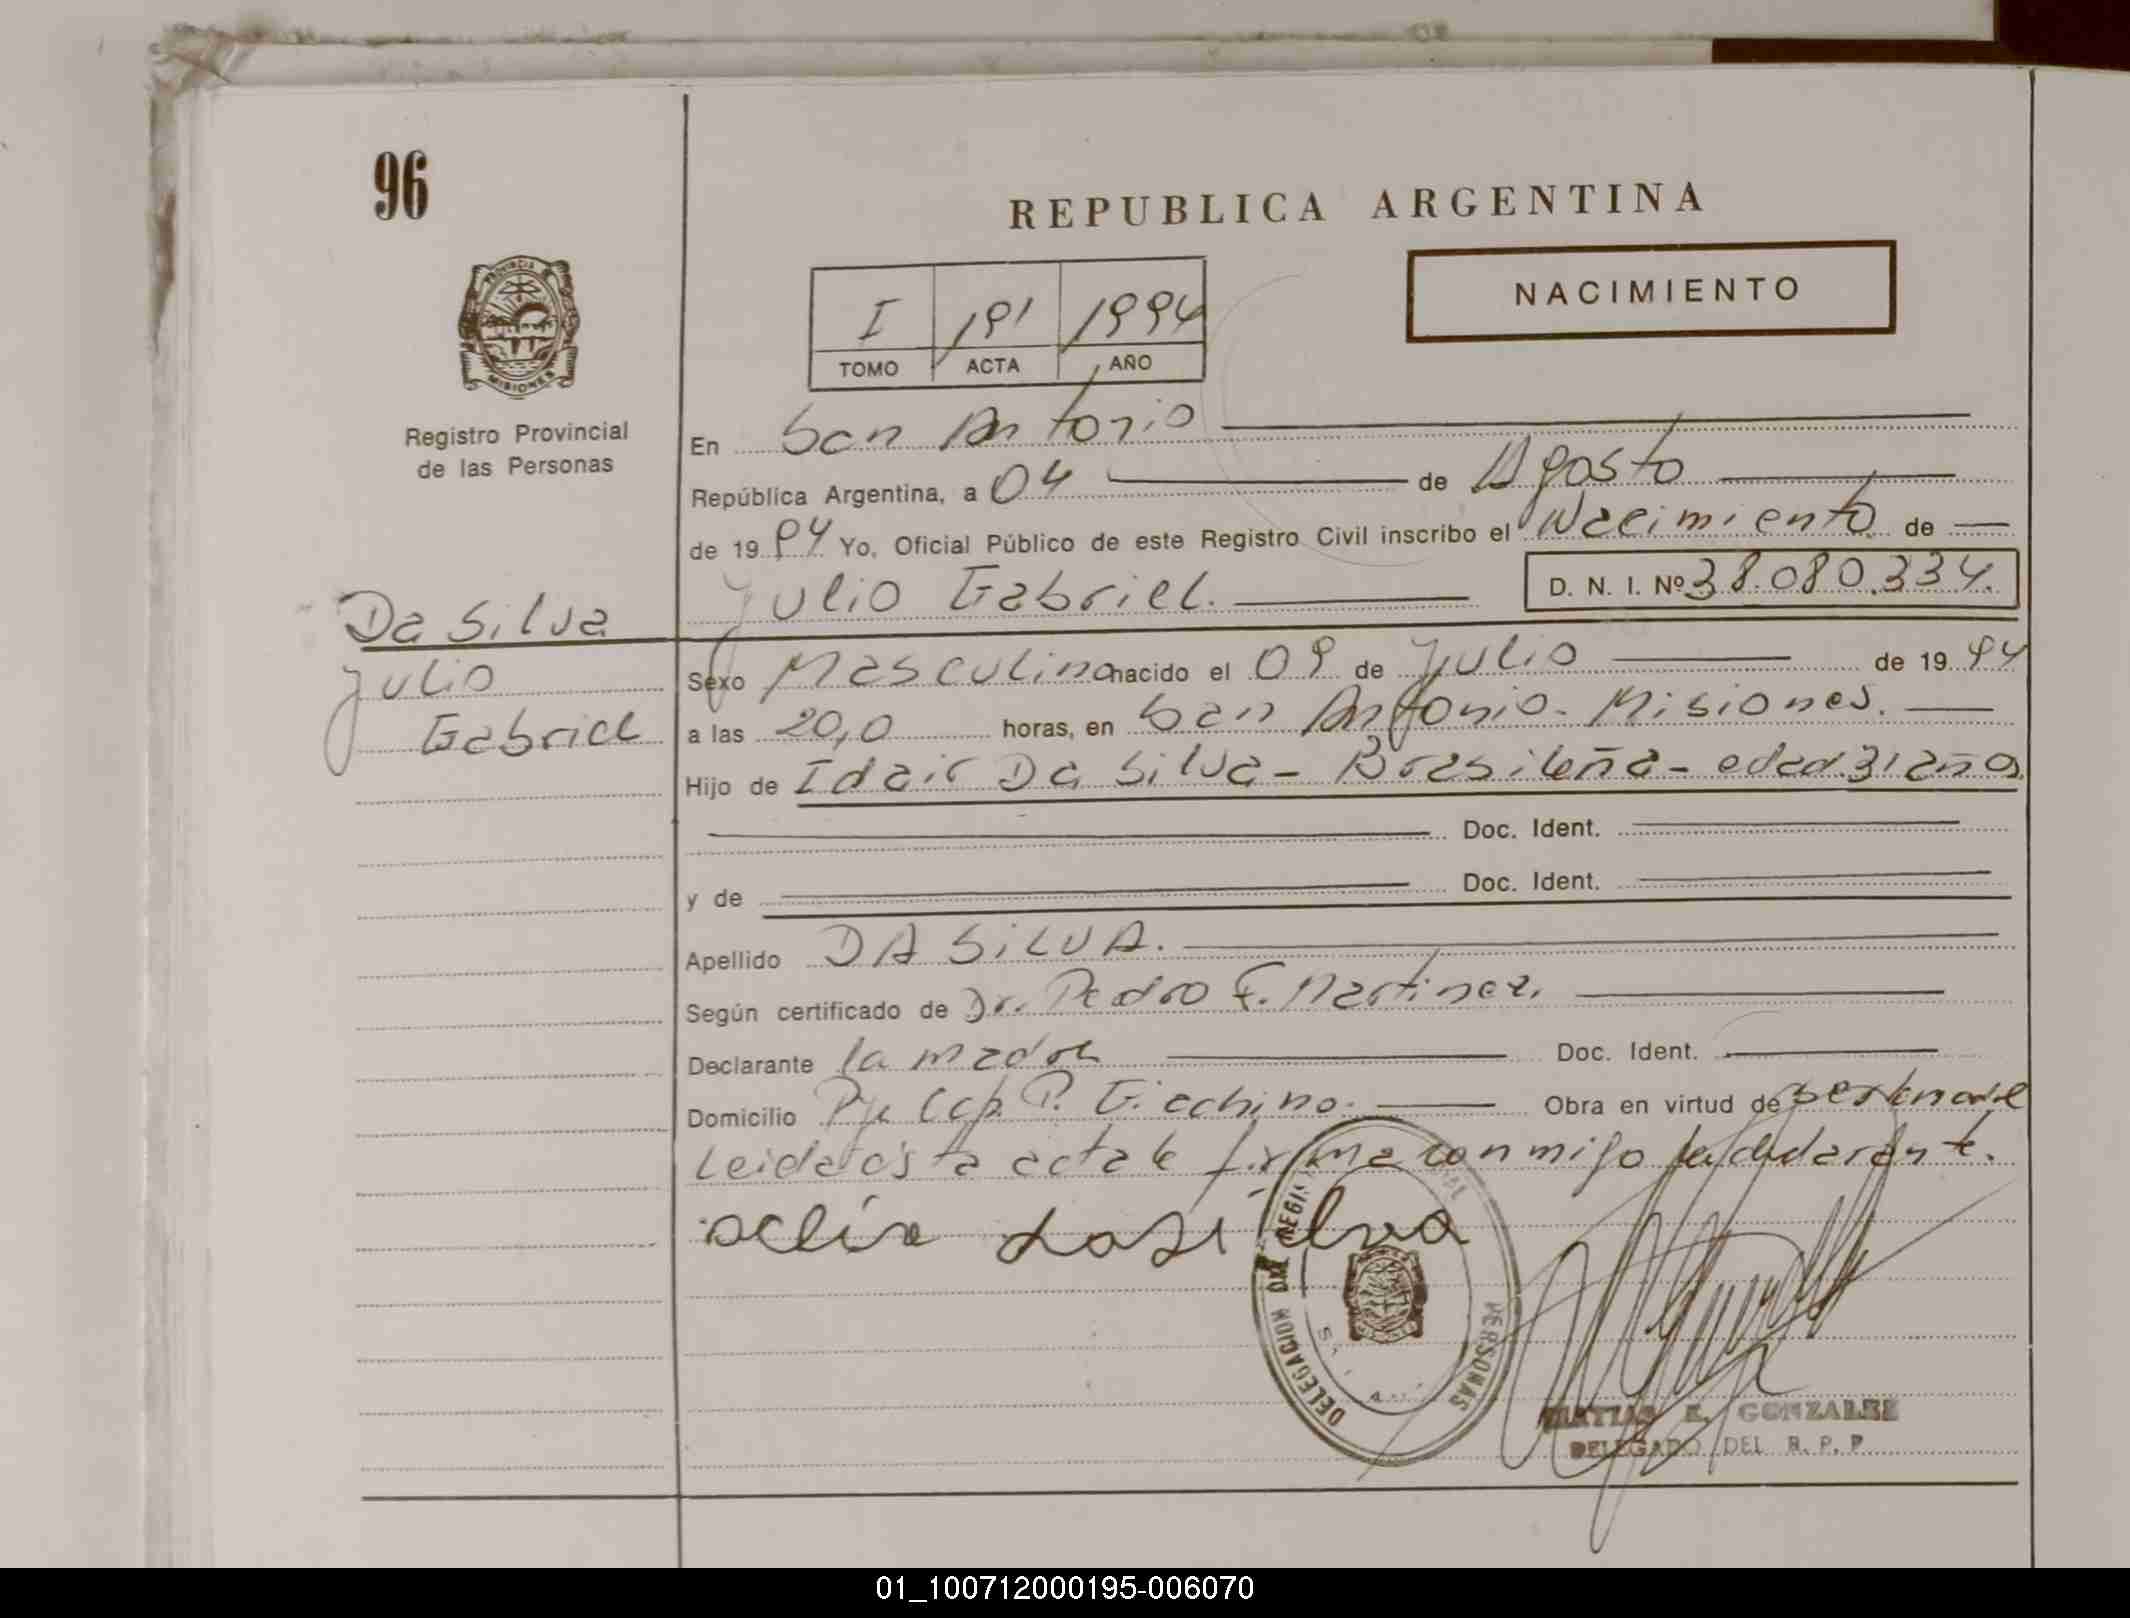 96
REPUBLICA ARGENTINA
NACIMIENTO
I 191 1994
TOMO ACTA AÑO
PROVINCIA
MISIONES
Registro Provincial
de las Personas
En San Antonio
República Argentina, a 04 de Agosto
de 1994 Yo, Oficial Público de este Registro Civil inscribo el Nacimiento de
Julio Gabriel. D. N. I. Nº 38.080.334.
Da Silva
Julio
Gabriel
Sexo Masculino nacido el 09 de Julio de 1994
a las 20,0 horas, en San Antonio. Misiones.
Hijo de Idair Da Silva - Brasileña - edad 31 años
Doc. Ident.
y de Doc. Ident.
Apellido DA SILVA.
Según certificado de Dr. Pedro F. Martinez.
Declarante la madre Doc. Ident.
Domicilio Pje Cap. P. Giachino. Obra en virtud de
Leida esta acta la firma conmigo la declarante.
da Silva
DELEGACION DEL REGIS
PERSONAS
MATIAS E. GONZALEZ
DELEGADO DEL R. P. P.
01_100712000195-006070